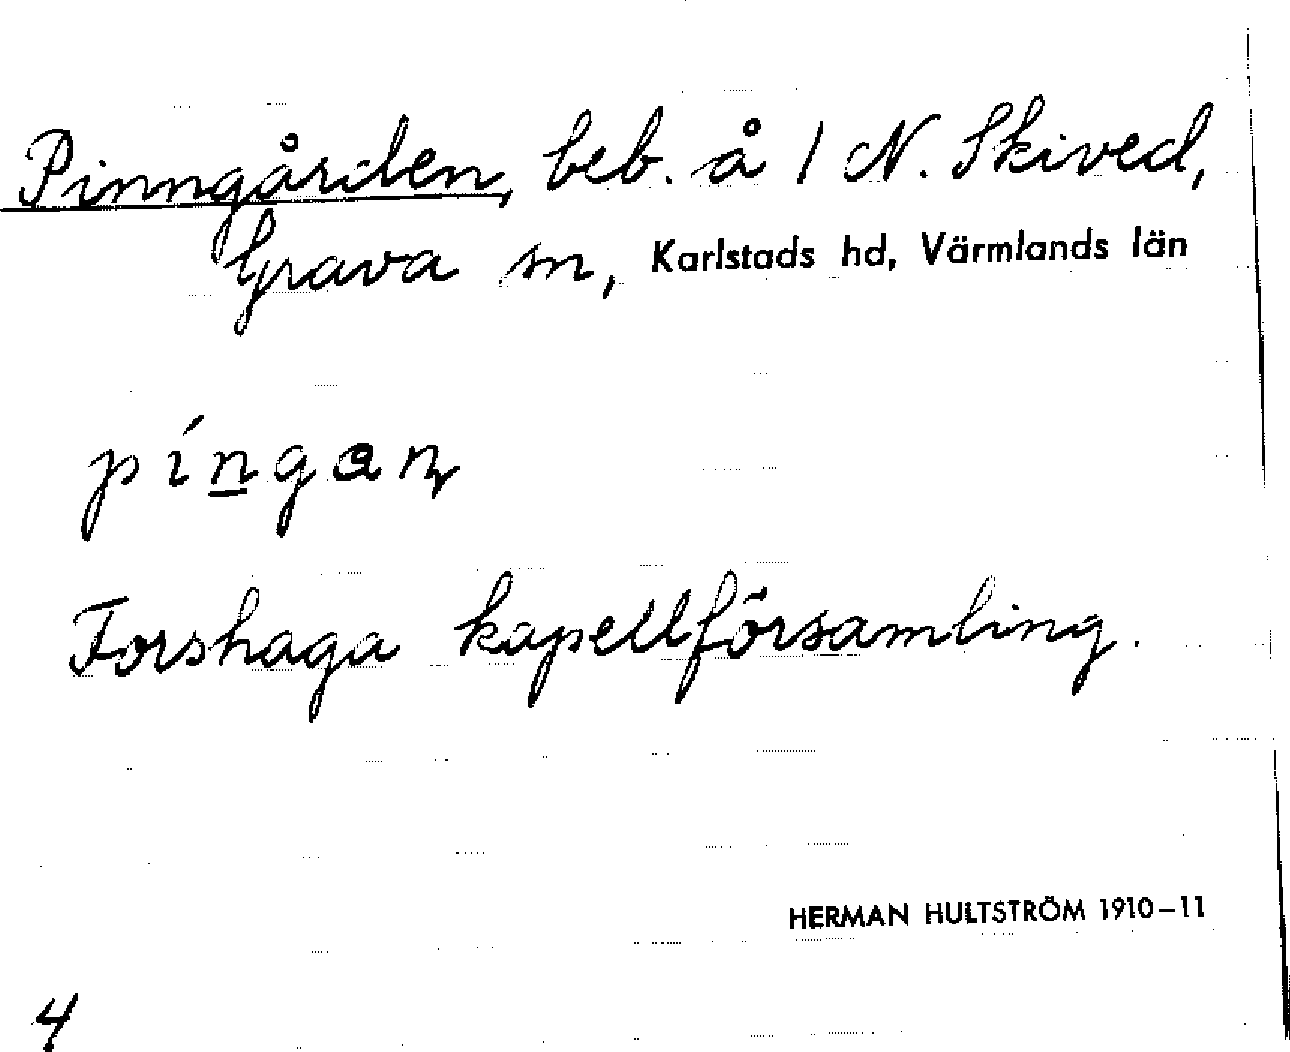 Pinngården, beb. å 1 N. Skived,
Grava sn, Karlstads hd, Värmlands län
píṉgaɳ
Forshaga kapellförsamling.
HERMAN HULTSTRÖM 1910–11
4